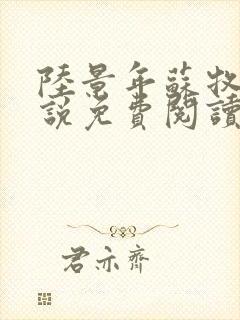 陸景年蘇牧
說免費閱讀
君亦齊